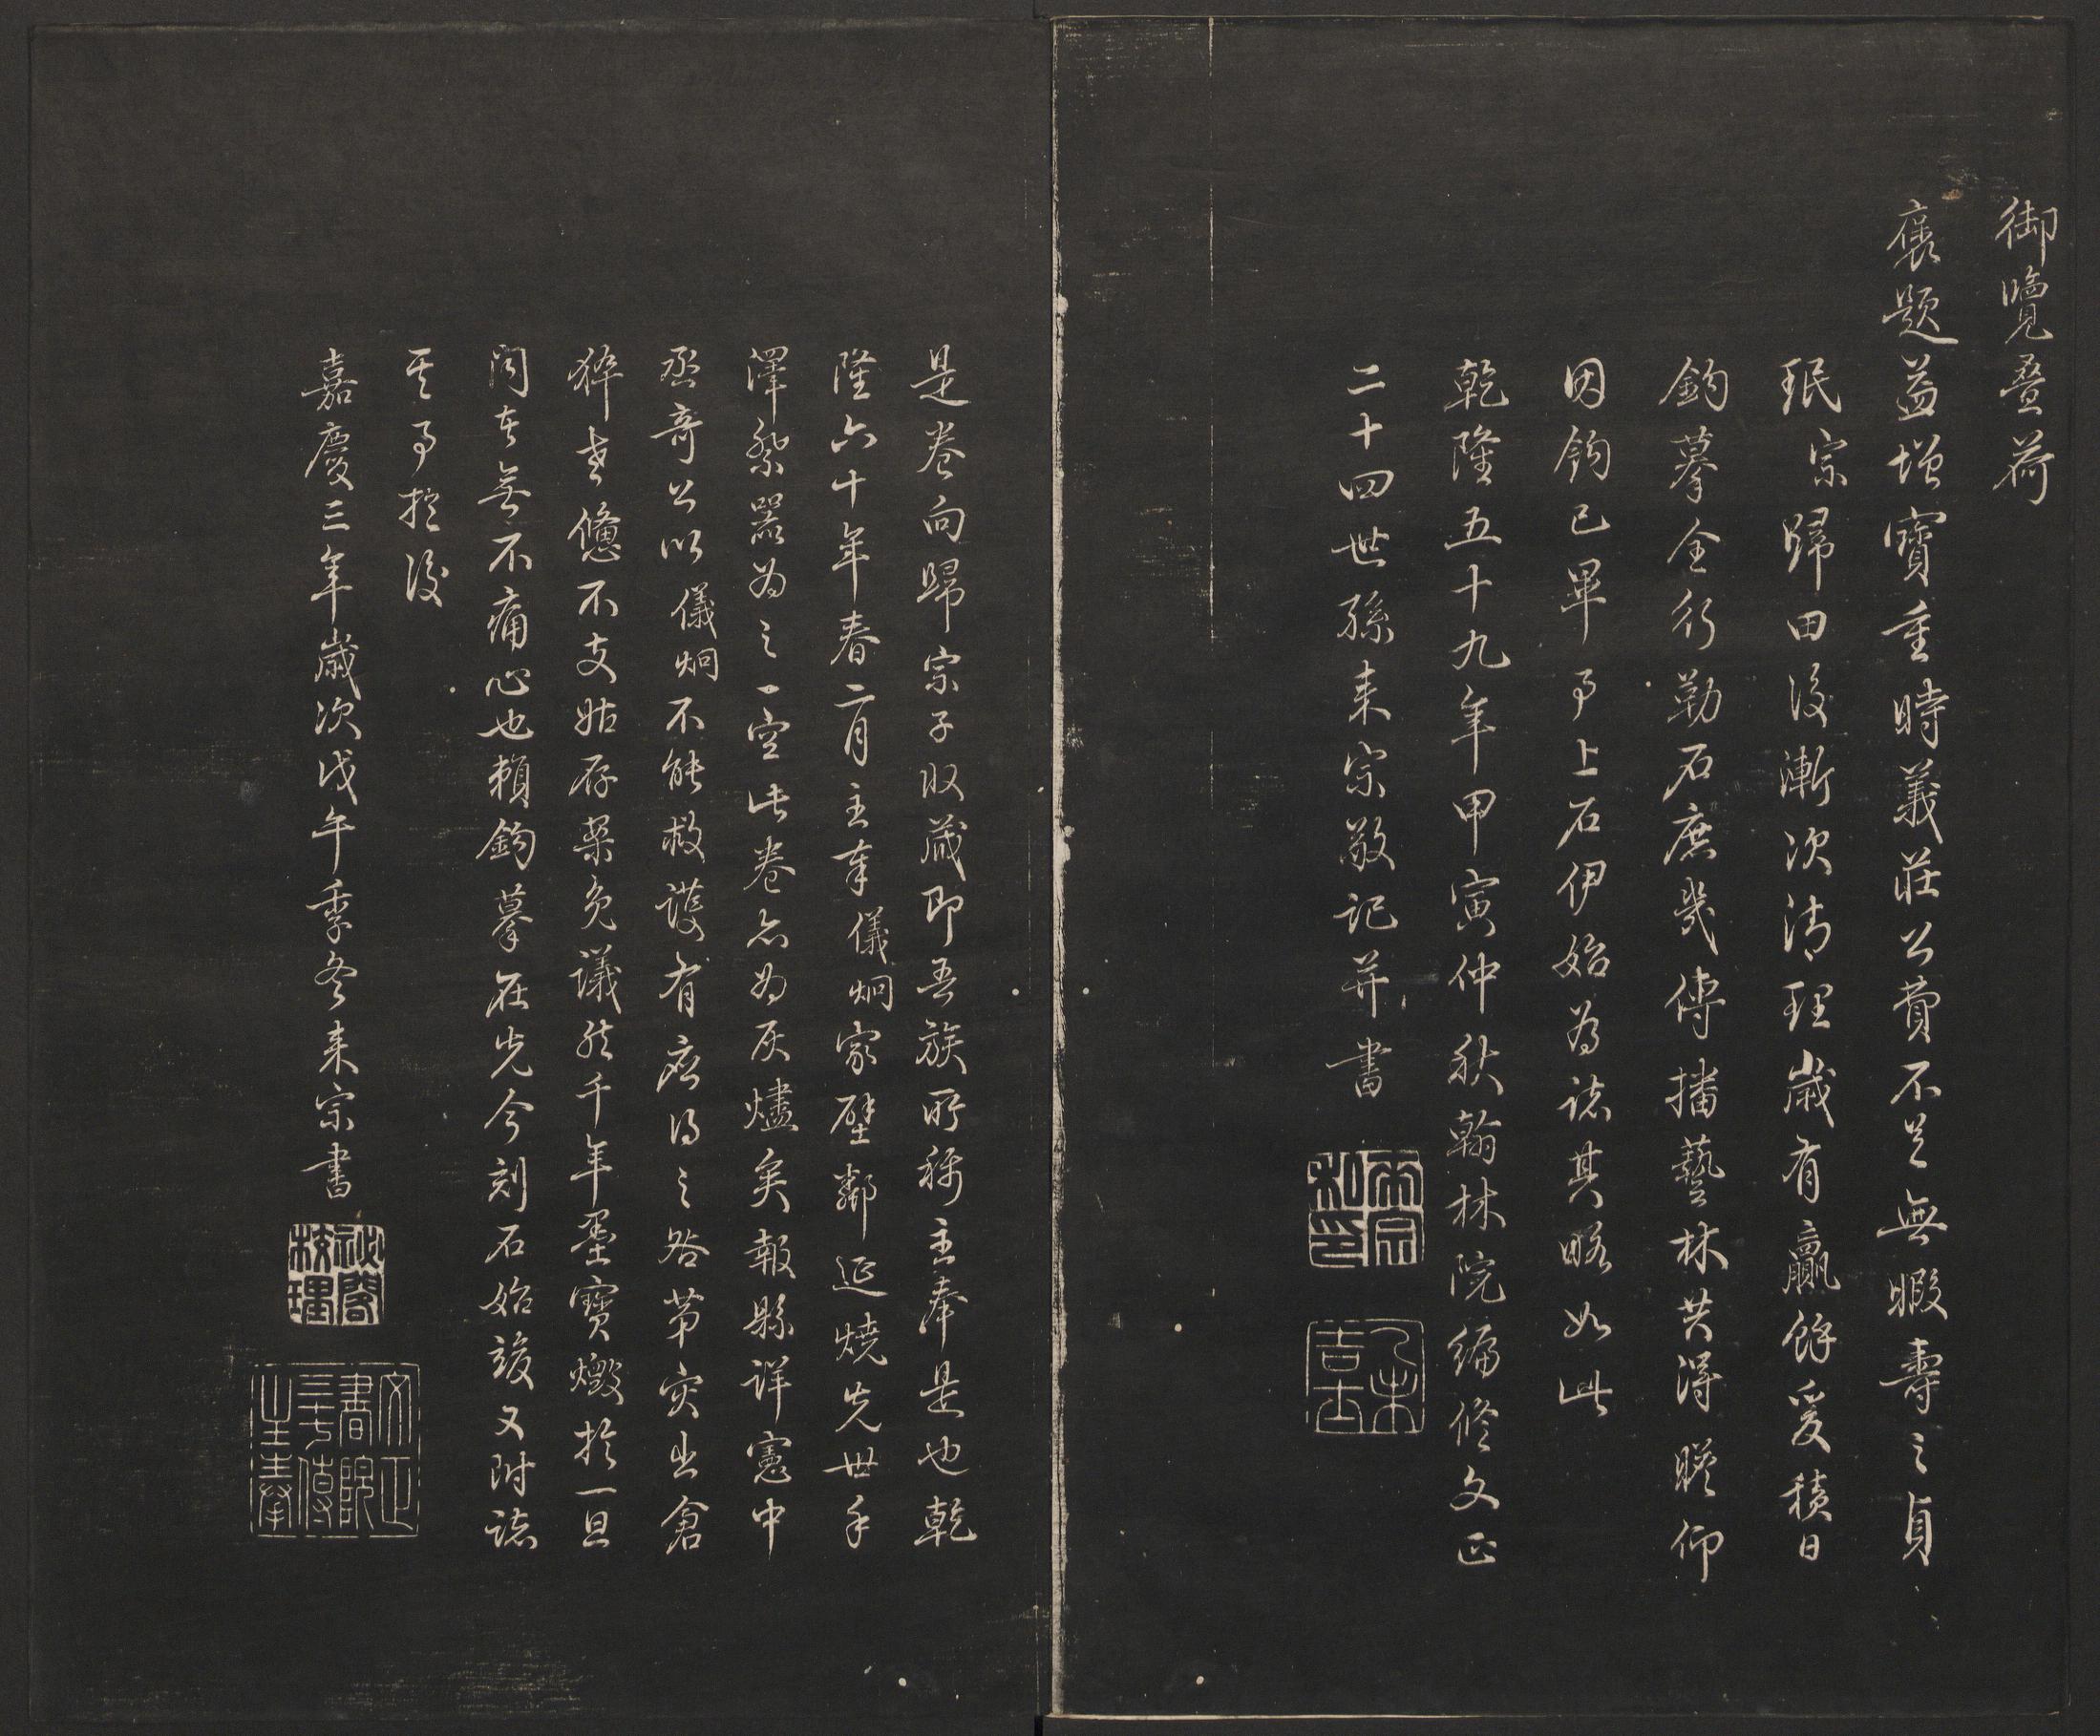 御覽叠荷
襃題益增寶重時義莊公費不足無暇壽之貞
珉宗歸田後漸次清理歲有贏餘爰積日
鈎摹全行勒石庶幾傳播藝林共得瞻仰
因鈎已畢予上石伊始為誌其略如此
乾隆五十九年甲寅仲秋翰林院編修文正
二十四世孫来宗敬記并書
来宗私印
乙未吉士
是卷向歸宗子收藏即吾族所稱主奉是也乾
隆六十年春二月主奉儀炯家壁鄰延燒先世手
澤祭器為之一空此卷亦為灰燼矣報縣詳憲中
丞奇公以儀炯不能救護有應得之咎第災出倉
猝老憊不支姑存案免議然千年墨寶燬於一旦
聞者無不痛心也賴鈎摹在先今刻石始竣又附誌
其事於後
嘉慶三年歲次戊午季冬来宗書
祕閣校理
文正書院主奉